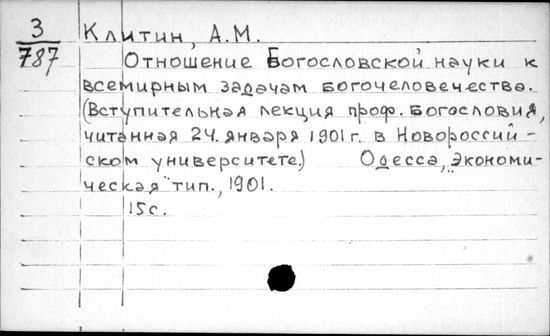 3
787
Клитин, А.М.
Отношение Богословской науки к
всемирным задачам богочеловечества.
(Вступительная лекция проф. Богословия,
читанная 24. января 1901г. в Новороссий-
ском университете.) Одесса, „Экономи-
ческая" тип., 1901.
15с.